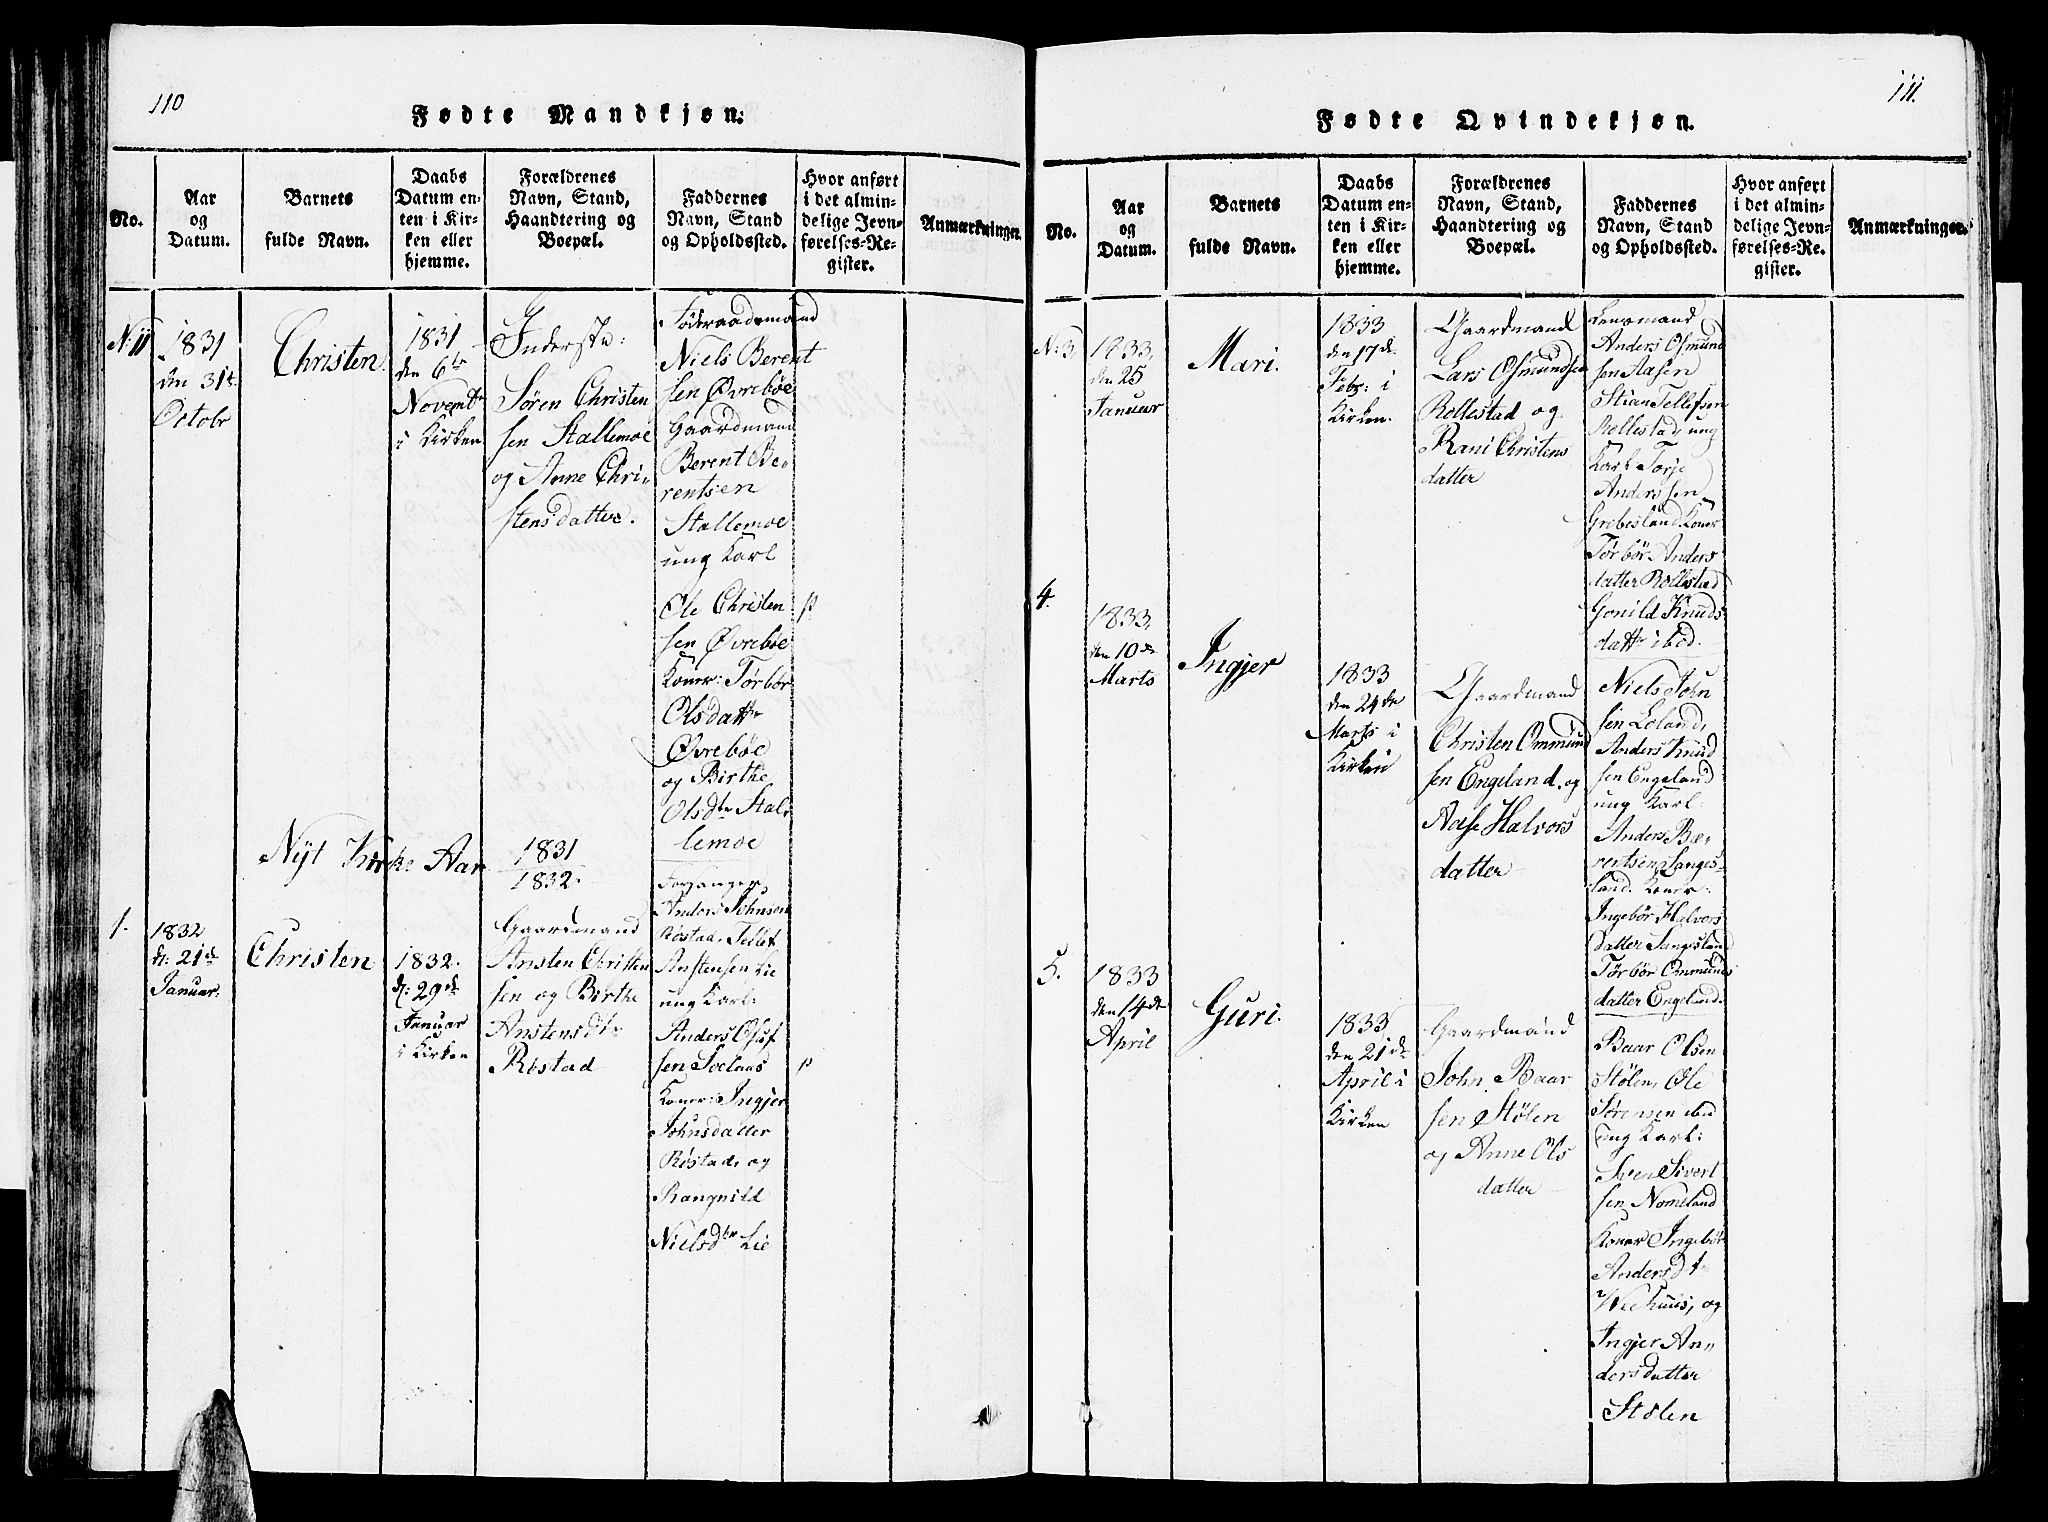 110
Fødte Mandkjøn.
No.
Aar
og
Datum.
Barnets
fulde Navn.
Daabs
Datum en-
ten i Kir-
ken eller
hjemme.
Forældrenes
Navn, Stand,
Haandtering og
Boepæl.
Faddernes
Navn, Stand
og Opholdssted.
Hvor anført
i det almin-
delige Jevn-
førelses-Re-
gister.
Anmærkninger.
N: 11
1831
den 31t
Octobr
Christen.
1831
den 6te
Novembr
i Kirken
Inderste:
Søren Christen
sen Stallemoe
og Anne Chri-
stensdatter.
Föderaadsmand
Niels Berent
sen Øvrebøe
Gaardmand
Berent Be-
rentsen
Stallemoe
ung Karl
Ole Christen
sen Øvrebøe
Koner: Tørbør
Olsdattr
Øvrebøe
og Birthe
Olsdtr Stal-
lemoe
Nyt Kirke Aar 1831
1832.
1.
1832
d: 21de
Januar.
Christen
1832.
d: 29de
Januar
i Kirken
Gaardmand
Ansten Christen
sen og Birthe
Anstensdtr
Røstad
Forsanger
Anders Johnsen
Røstad, Tellef
Anstensen Lie
ung Karl:
Anders Oluf
sen
Koner: Ingjer
Johnsdatter
Røstad, og
Rangnild
Nielsdtr Lie
111.
Fødte Qvindekjøn.
No.
Aar
og
Datum.
Barnets
fulde Navn.
Daabs
Datum en-
ten i Kir-
ken eller
hjemme.
Forældrenes
Navn, Stand,
Haandtering og
Boepæl.
Faddernes
Navn, Stand
og Opholdssted.
Hvor anført
i det almin-
delige Jevn-
førelses-Re-
gister.
Anmærkninger.
N: 3
1833,
den 25
Januar
Mari.
1833
den 17de
Febr: i
Kirken.
Gaardmand
Lars Osmundsen
Rollestad og
Rani Christens
datter
Lensmand
Anders Osmund
sen Aasen
Stian Tellefsen
Rollestad, ung
Karl Torje
Anderssen
Grebesland. Koner
Tørbør Anders
datter Rollestad
Gonild Knuds
dattr ibd.
4.
1833,
den 10de
Marts
Ingjer
1833
den 24de
Marts i
Kirken
Gaardmand
Christen Ommund
sen Engeland, og
Aase Halvors
datter
Niels John
sen Loland,
Anders Knud
sen Engeland
ung Karl:
Anders Bæ-
rentsen Langes-
land. Koner:
Ingebør Halvors
datter Langesland
Tørbør Ommunds
datter Engeland.
5.
1833
den 14de
April
Guri.
1833
den 21de
April i
Kirken
Gaardmand
John Baar
sen Stølen
og Anne Ols
datter
Baar Olsen
Stølen, Ole
Sørensen ibd
ung Karl:
Sven Sivert
sen Nomeland
Koner Ingebør
Andersdtr
Weehuus, og
Ingjer An-
dersdatter
Stølen